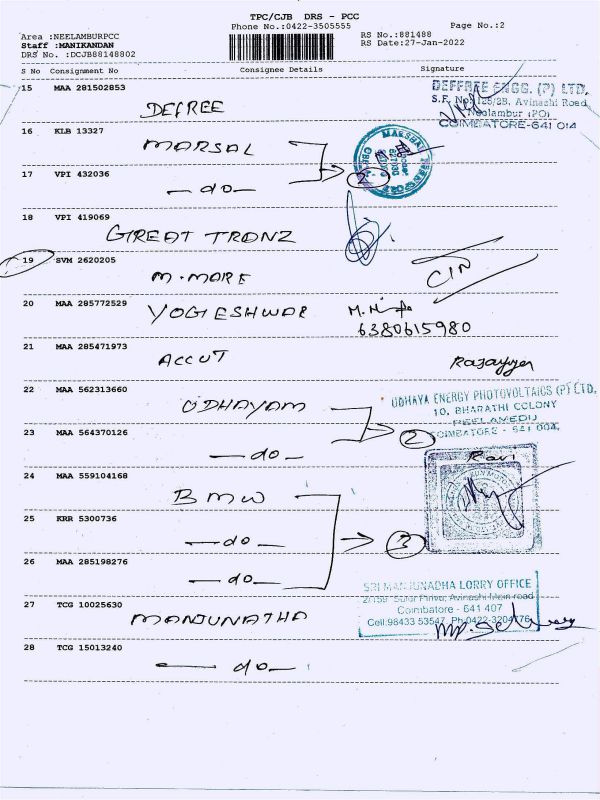 TPC/CJB DRS - PCC
Phone No.:0422-3505555
Page No.:2
Area :NEELAMBURPCC
Staff :MANIKANDAN
DRS No. :DCJB88148802
RS No.:881488
RS Date:27-Jan-2022
S No Consignment No Consignee Details Signature
15 MAA 281502853
DEFREE
DEFFREE ENGG. (P) LTD,
S.F. No. 125/2B, Avinashi Road
Neelambur (PO)
COIMBATORE-641 014
16 KLB 13327
MARSAL
17 VPI 432036
-do-
2
18 VPI 419069
GREAT TRANZ
19 SVM 2620205
M.MARE
20 MAA 285772529
YOGIESHWAR
6380615980
21 MAA 285471973
ACCUT
22 MAA 562313660
UDHAYAM
UDHAYA ENERGY PHOTOVOLTAICS (P) LTD,
10, BHARATHI COLONY
PEELAMEDU
COIMBATORE - 641 004.
23 MAA 564370126
-do-
2
24 MAA 559104168
BMW
Ravi
25 KRR 5300736
-do-
3
26 MAA 285198276
-do-
SRI MANJUNADHA LORRY OFFICE
Avinashi Main road
Coimbatore - 641 407
Cell:98433 53547, Ph:0422-3204776
27 TCG 10025630
MANJUNATHA
28 TCG 15013240
-do-